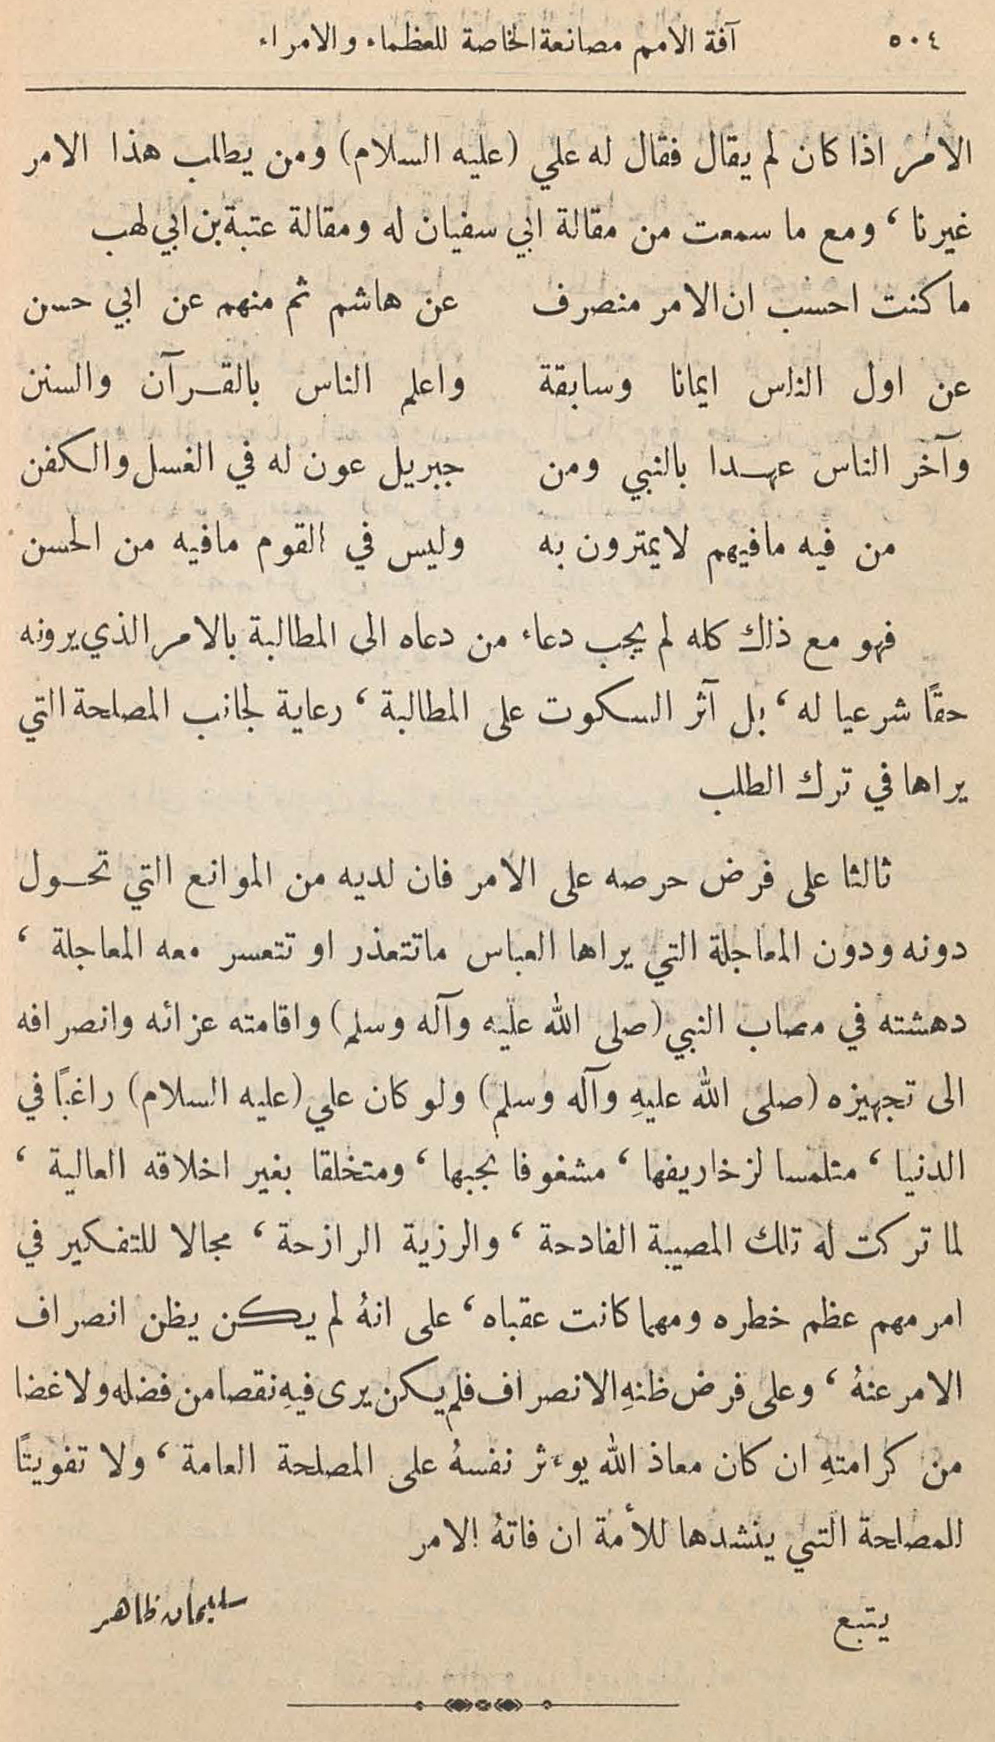 ٥٠٤ آفة الامم مصانعة الخاصة للعظماء والامراء
الامر اذا كان لم يقال فقال له علي (عليه السلام) ومن يطلب هذا الامر
غيرنا ، ومع ما سمعت من مقالة ابي سفيان له ومقالة عتبة بن ابي لهب
ما كنت احسب ان الامر منصرف عن هاشم ثم منهم عن ابي حسن
عن اول الناس ايمانا وسابقة واعلم الناس بالقرآن والسنن
وآخر الناس عهدا بالنبي ومن جبريل عون له في الغسل والكفن
من فيه مافيهم لايمترون به وليس في القوم مافيه من الحسن
فهو مع ذلك كله لم يجب دعاء من دعاه الى المطالبة بالامر الذي يرونه
حقًا شرعيا له ، بل آثر السكوت على المطالبة ، رعاية لجانب المصلحة التي
يراها في ترك الطلب
ثالثا على فرض حرصه على الامر فان لديه من الموانع التي تحول
دونه ودون المعاجلة التي يراها العباس ماتتعذر او تتعسر معه المعاجلة ،
دهشته في مصاب النبي (صلى الله عليه وآله وسلم) واقامته عزائه وانصرافه
الى تجهيزه (صلى الله عليهِ وآله وسلم) ولو كان علي (عليه السلام) راغبًا في
الدنيا ، متلمسا لزخاريفها ، مشغوفا بحبها ، ومتخلقا بغير اخلاقه العالية ،
لما تركت له تلك المصيبة الفادحة ، والرزية الرازحة ، مجالا للتفكير في
امر مهم عظم خطره ومهما كانت عقباه ، على انهُ لم يكن يظن انصراف
الامر عنهُ ، وعلى فرض ظنهِ الانصراف فلم يكن يرى فيهِ نقصا من فضله ولا غضا
من كرامتهِ ان كان معاذ الله يوءثر نفسهُ على المصلحة العامة ، ولا تفويتًا
للمصلحة التي ينشدها للأمة ان فاتهُ الامر
يتبع سليمان ظاهر